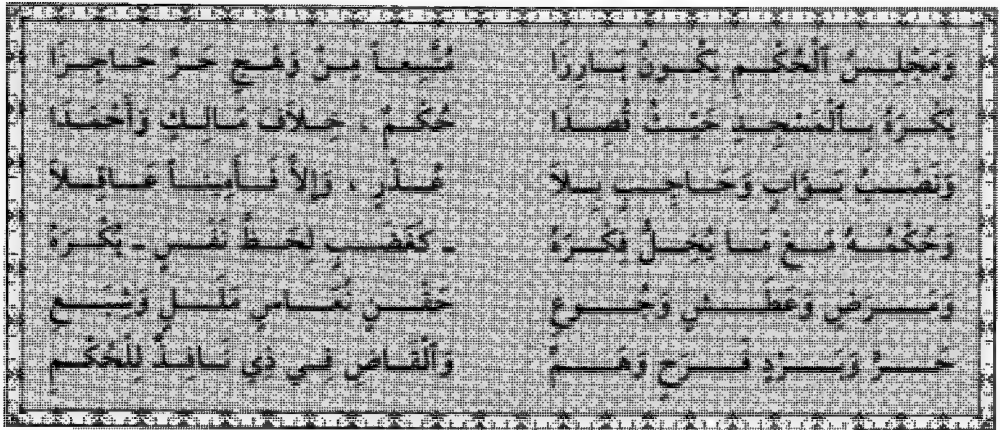 وَمَجْلِسُ ٱلْحُكْمِ يَكُونُ بَارِزَا مُتَّسِعاً مِنْ وَهْجِ حَرٍّ حَاجِزَا
يُكْرَهُ بِٱلْمَسْجِدِ حَيْثُ قُصِدَا حُكْمٌ، خِلَافَ مَالِكٍ وَأَحْمَدَا
وَنَصْبُ بَوَّابٍ وَحَاجِبٍ بِلاَ عُذْرٍ، وَإِلاَّ فَأَمِيناً عَاقِلاَ
وَحُكْمُهُ مَعْ مَا يُخِلُّ فِكْرَهُ - كَغَضَبٍ لِحَظِّ نَفْسٍ - يُكْرَهُ
وَمَرَضٍ وَعَطَشٍ وَجُوعِ حَقْنٍ نُعَاسٍ مَلَلٍ وَشِبَعِ
حَرٍّ وَبَرْدٍ فَرَحٍ وَهَمِّ وَٱلْقَاصِ فِي ذِي نَافِذٌ لِلْحُكْمِ